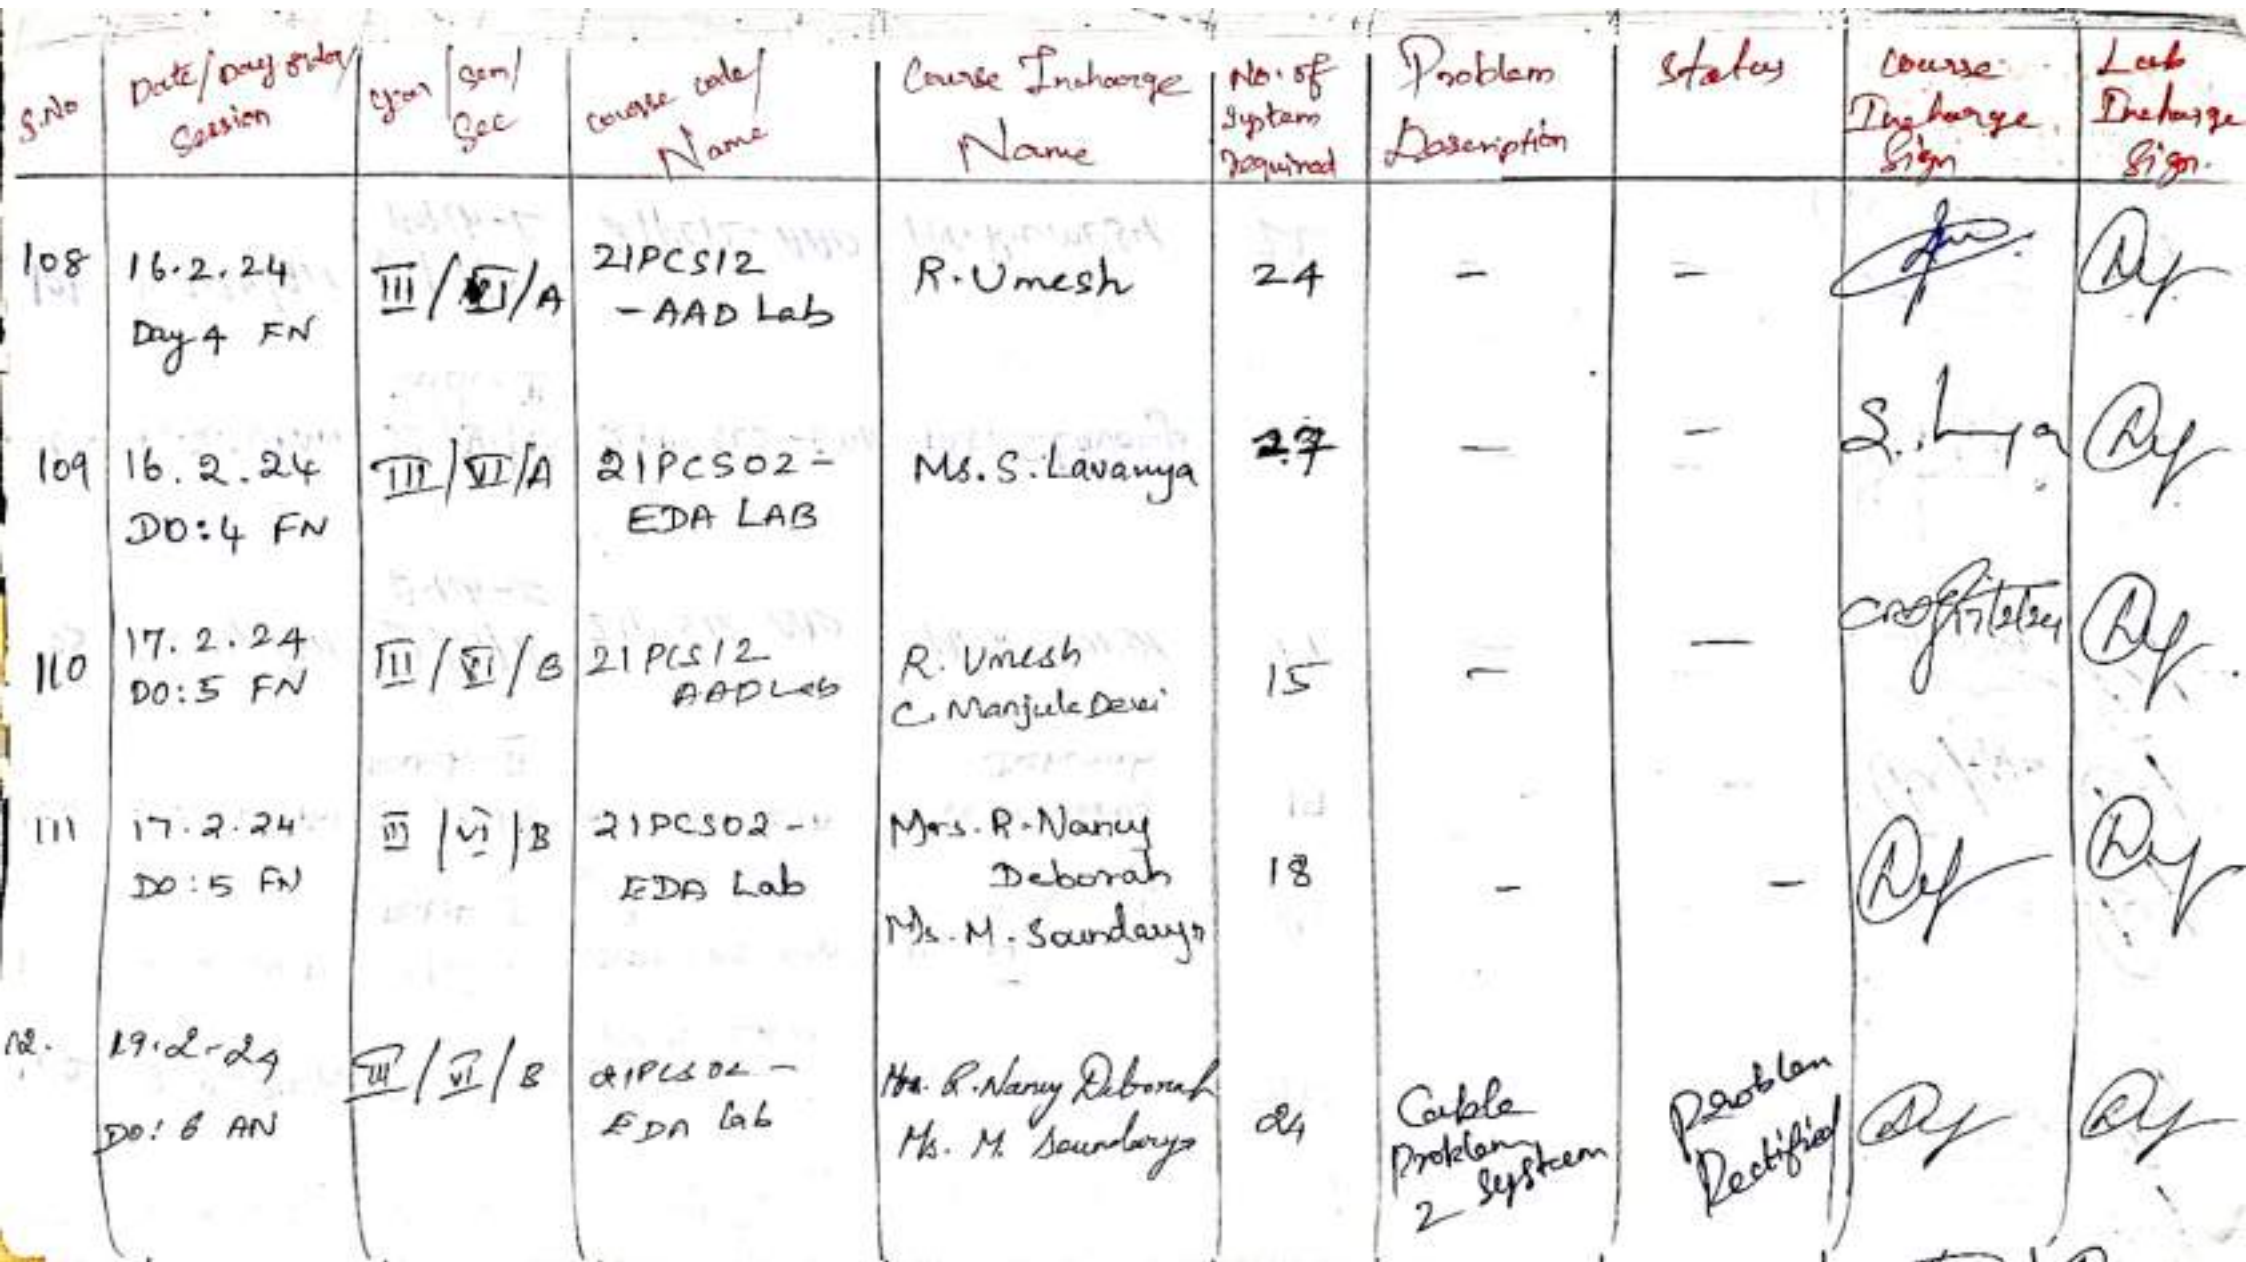 S.No | Date/Day order/ Session | Year/Sem/ Sec | Course code/ Name | Course Incharge Name | No. of System required | Problem Description | Status | Course Incharge Sign | Lab Incharge Sign.
108 | 16.2.24 Day 4 FN | III/VI/A | 21PCS12 - AAD Lab | R. Umesh | 24 | - | -
109 | 16.2.24 DO:4 FN | III/VI/A | 21PCS02 - EDA LAB | Ms. S. Lavanya | 27 | - | -
110 | 17.2.24 DO:5 FN | III/VI/B | 21PCS12 AAD Lab | R. Umesh C. Manjula Devi | 15 | - | - | 17/2/24
111 | 17.2.24 DO:5 FN | III/VI/B | 21PCS02 - EDA Lab | Mrs. R. Nancy Deborah Ms. M. Soundarya | 18 | - | -
12. | 19.2.24 DO: 6 AN | III/VI/B | 21PCS02 - EDA Lab | Mrs. R. Nancy Deborah Ms. M. Soundarya | 24 | Cable Problem 2 system | Problem Rectified